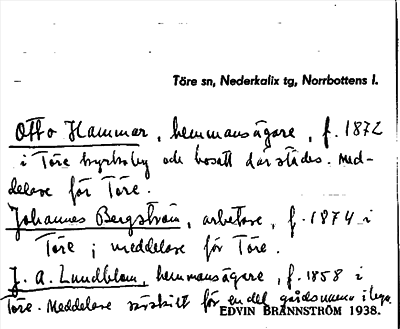 Töre sn, Nederkalix tg, Norrbottens l.
Otto Hammar, hemmansägare, f. 1872
i Töre kyrkoby och bosatt därstädes. Med-
delare för Töre.
Johannes Bergström, arbetare, f. 1874 i
Töre; meddelare för Töre.
J. A. Lundblom, hemmansägare, f. 1858 i
Töre. Meddelare särskilt för en del gårdsnamn i
EDVIN BRÄNNSTRÖM 1938.